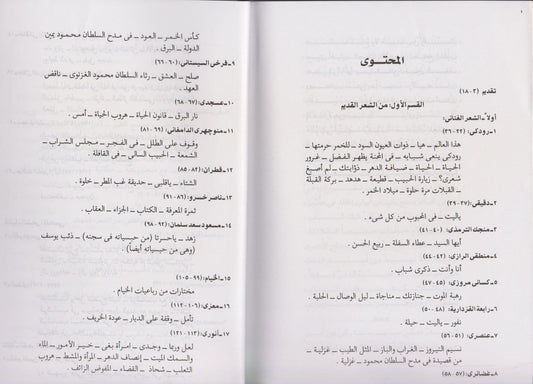 المحتوى
تقديم (٣-١٨)
القسم الأول: من الشعر القديم
أولاً-الشعر الغنائى:
١-رودكى: (٢٢-٣٦)
هذا العالم ــ هيا ــ ذوات العيون السود ــ للخمر حرمتها ــ
رودكى ينعى شبابه ــ فى المحنة يظهر الفضل ــ غرور
الحياة ــ الحياة ــ ضيافة الدهر ــ ذؤابتك ــ لم أصبغ
شعرى؟ ــ زيارة الحبيب ــ قطيعة ــ هدهد ــ بركة القبلة
ــ القبلات مرة حلوة ــ ميلاد الخمر .
٢-دقيقى: (٣٧-٣٩)
ياليت ــ فى المحبوب من كل شىء .
٣-منجك الترمذى: (٤٠-٤١)
أيها السيد ــ عطاء السفلة ــ ربيع الحسن .
٤-منطقى الرازى: (٤٢-٤٤)
أنا وأنت ــ ذكرى شباب .
٥-كسائى مروزى: (٤٥-٤٧)
رهبة الموت ــ جنازتك ــ مناجاة ــ ليل الوصال ــ الحلبة .
٦-رابعة القزدارية: (٤٨-٥٠)
نفور ــ ياليت ــ حيلة .
٧-عنصرى: (٥١-٥٦)
نسيم النيروز ــ الغراب والباز ــ المثل الطيب ــ غزالية ــ
من قصيدة فى مدح السلطان محمود .
٨-غضائرى: (٥٧-٥٨)
كأس الخمر ــ العود ــ فى مدح السلطان محمود يمين
الدولة ــ البرق .
٩-فرخى السيستانى: (٦٠-٦٦)
صلح ــ العشق ــ رثاء السلطان محمود الغزنوى ــ ناقض
العهد .
١٠-عسجدى: (٦٧-٦٨)
نار البرق ــ قانون الحياة ــ هروب الحياة ــ أمس .
١١-منوچهرى الدامغانى: (٦٩-٨١)
وقوف على الطلل ــ فى الفجر ــ مجلس الشراب ــ
الشمعة ــ الحبيب السالى ــ فى القافلة .
١٢-قطران: (٨٢-٨٥)
الشتاء ــ ياقلبى ــ حديقة غب المطر ــ خلوة .
١٣-ناصر خسرو: (٨٦-٩١)
ثمرة المعرفة ــ الكتاب ــ الجزاء ــ العقاب .
١٤-مسعود سعد سلمان: (٩٢-٩٨)
زهد ــ ياحسرتا (من حبسياته فى سجنه) ــ ذئب يوسف
(وهى من حبسياته أيضاً) .
١٥-الخيام: (٩٩-١٠٥)
مختارات من رباعيات الخيام .
١٦-معزى: (١٠٦-١١٢)
تأمل ــ وقفة على الديار ــ عودة الخريف .
١٧-أنورى: (١١٣-١٢١)
لعل وربما ــ وجدى ــ امرأة بغى ــ خير الأمور ــ الماء
والسمك الميت ــ إنصاف الدهر ــ المرأة والمشط ــ هروب
الثعلب ــ شحاذ ــ القضاء ــ المفوض الزائف .